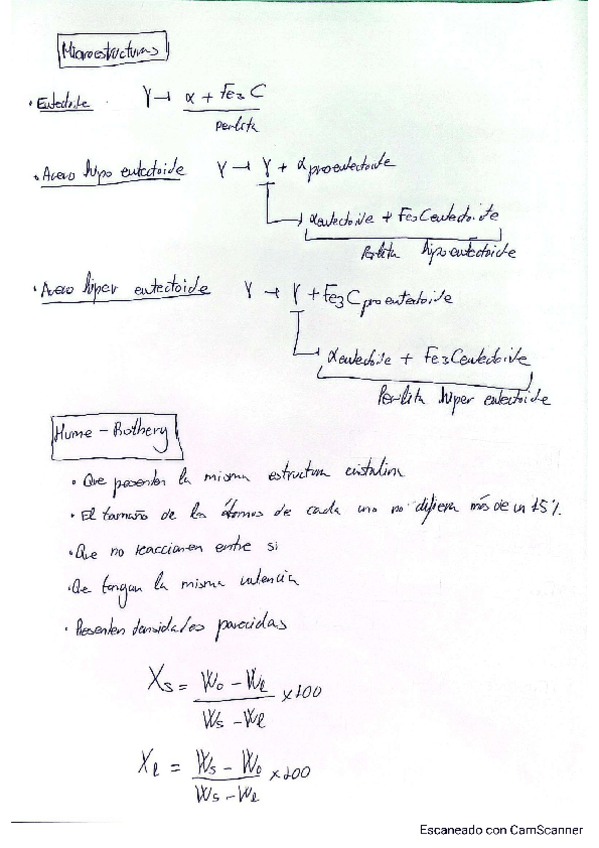 Microestructuras
· Eutectoide γ → α + Fe3C
Perlita
· Acero hipo eutectoide γ → γ + α proeutectoide
α eutectoide + Fe3C eutectoide
Perlita hipoeutectoide
· Acero hiper eutectoide γ → γ + Fe3C proeutectoide
α eutectoide + Fe3C eutectoide
Perlita hiper eutectoide
Hume - Rothery
· Que presenten la misma estructura cristalina
· El tamaño de los átomos de cada uno no difiera más de un 15%.
· Que no reaccionen entre si
· Que tengan la misma valencia
· Presenten densidades parecidas
Xs = W0 - Wl / Ws - Wl x 100
Xl = Ws - W0 / Ws - Wl x 100
Escaneado con CamScanner